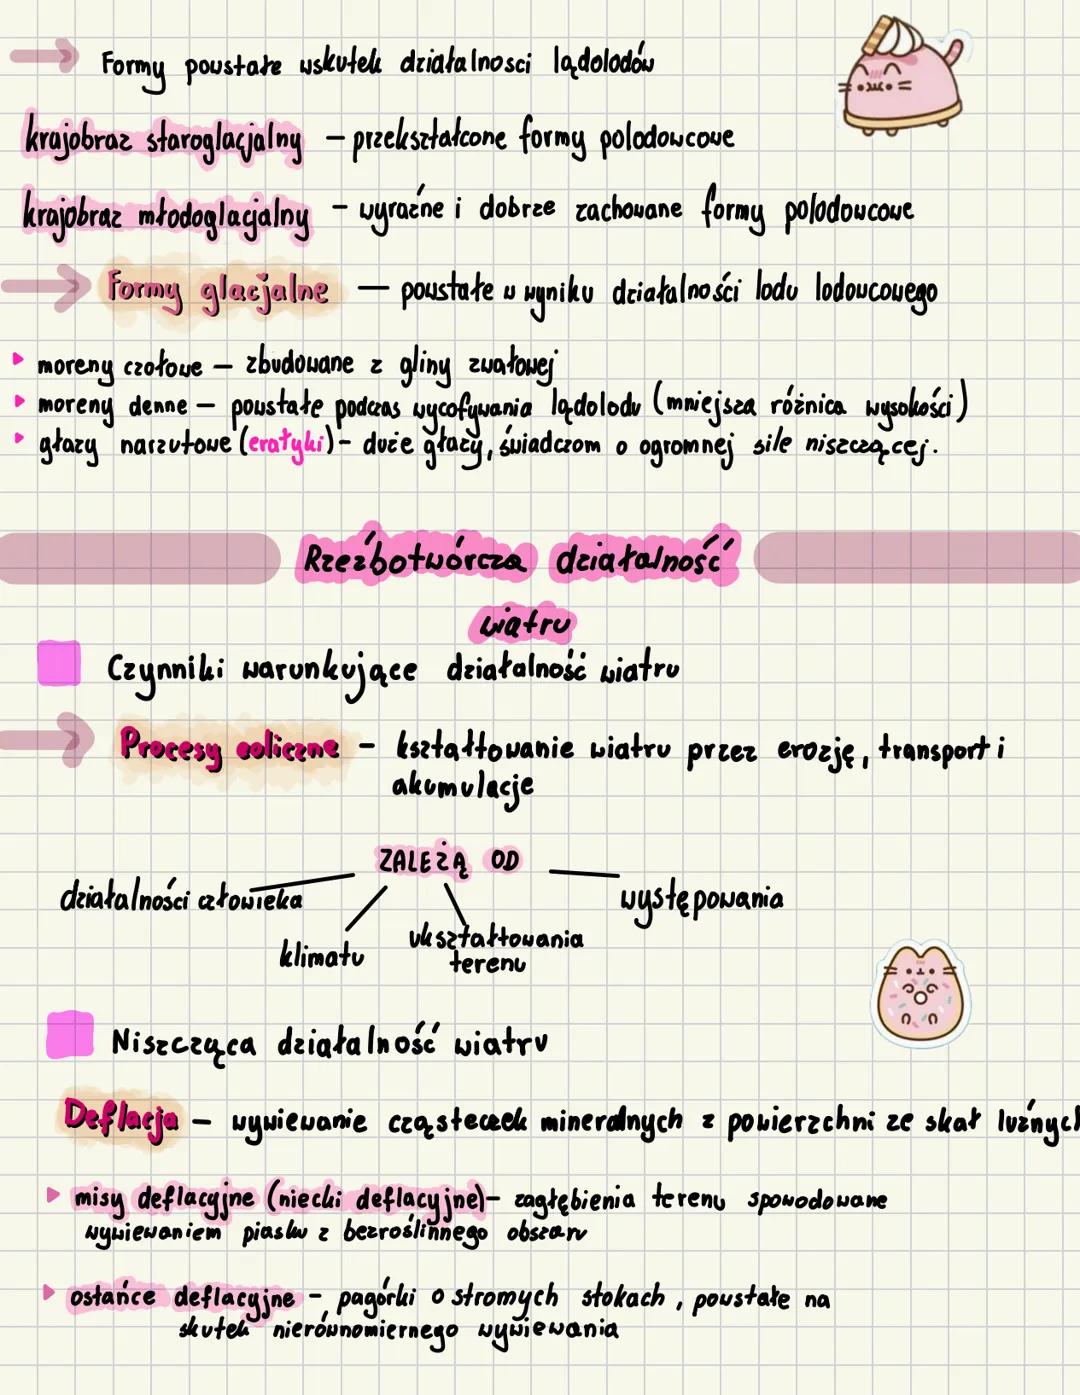 Formy powstałe wskutek działalnosci lądolodów
krajobraz staroglacjalny – przekształcone formy polodowcowe
krajobraz młodoglacjalny – wyraźne i dobrze zachowane formy polodowcowe
Formy glacjalne – powstałe w wyniku działalności lodu lodowcowego
moreny czołowe – zbudowane z gliny zwałowej
moreny denne – powstałe podczas wycofywania lądolodu (mniejsza różnica wysokości)
głazy narzutowe (eratyki) – duże głazy, świadczom o ogromnej sile niszczącej.
Rzeźbotwórcza działalność
wiatru
Czynniki warunkujące działalność wiatru
Procesy eoliczne – kształtowanie wiatru przez erozję, transport i
akumulacje
ZALEŻĄ OD
działalności człowieka
klimatu
ukształtowania
terenu
występowania
Niszcząca działalność wiatru
Deflacja – wywiewanie cząsteczek mineralnych z powierzchni ze skał luźnych
misy deflacyjne (niecki deflacyjne) – zagłębienia terenu spowodowane
wywiewaniem piasku z bezroślinnego obszaru
ostańce deflacyjne – pagórki o stromych stokach, powstałe na
skutek nierównomiernego wywiewania